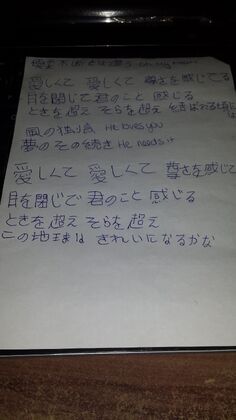 愛しくて 愛しくて 尊さを感じてる
目を閉じて君のこと 感じる
ときを超え そらを超え 結ばれる頃に
風の独り He loves you
夢のその続き He needs it
愛しくて 愛しくて 尊さを感じて
目を閉じて 君のこと 感じる
ときを超え そらを超え
この地球は きれいになるかな